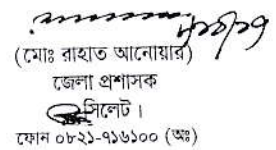 (মোঃ রাহাত আনোয়ার)
জেলা প্রশাসক
সিলেট।
ফোন ০৮২১-৭১৬১০০ (অঃ)